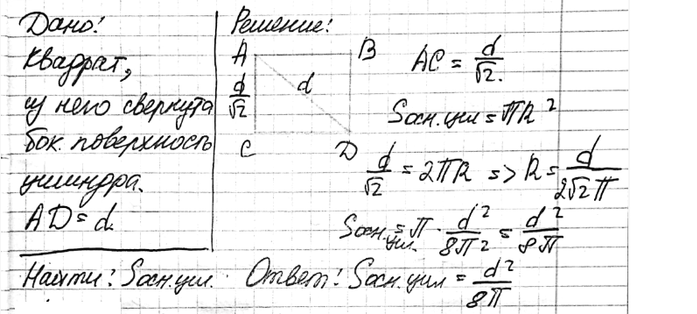 Дано:
Квадрат,
из него свернута
бок. поверхность
цилиндра.
AD = d.
Найти: Sосн.цил.
Решение:
A B
d/√2 d
C D
AC = d/√2.
Sосн.цил = πR²
d/√2 = 2πR => R = d/2√2π
Sосн.цил. = π · d²/8π² = d²/8π
Ответ: Sосн.цил = d²/8π